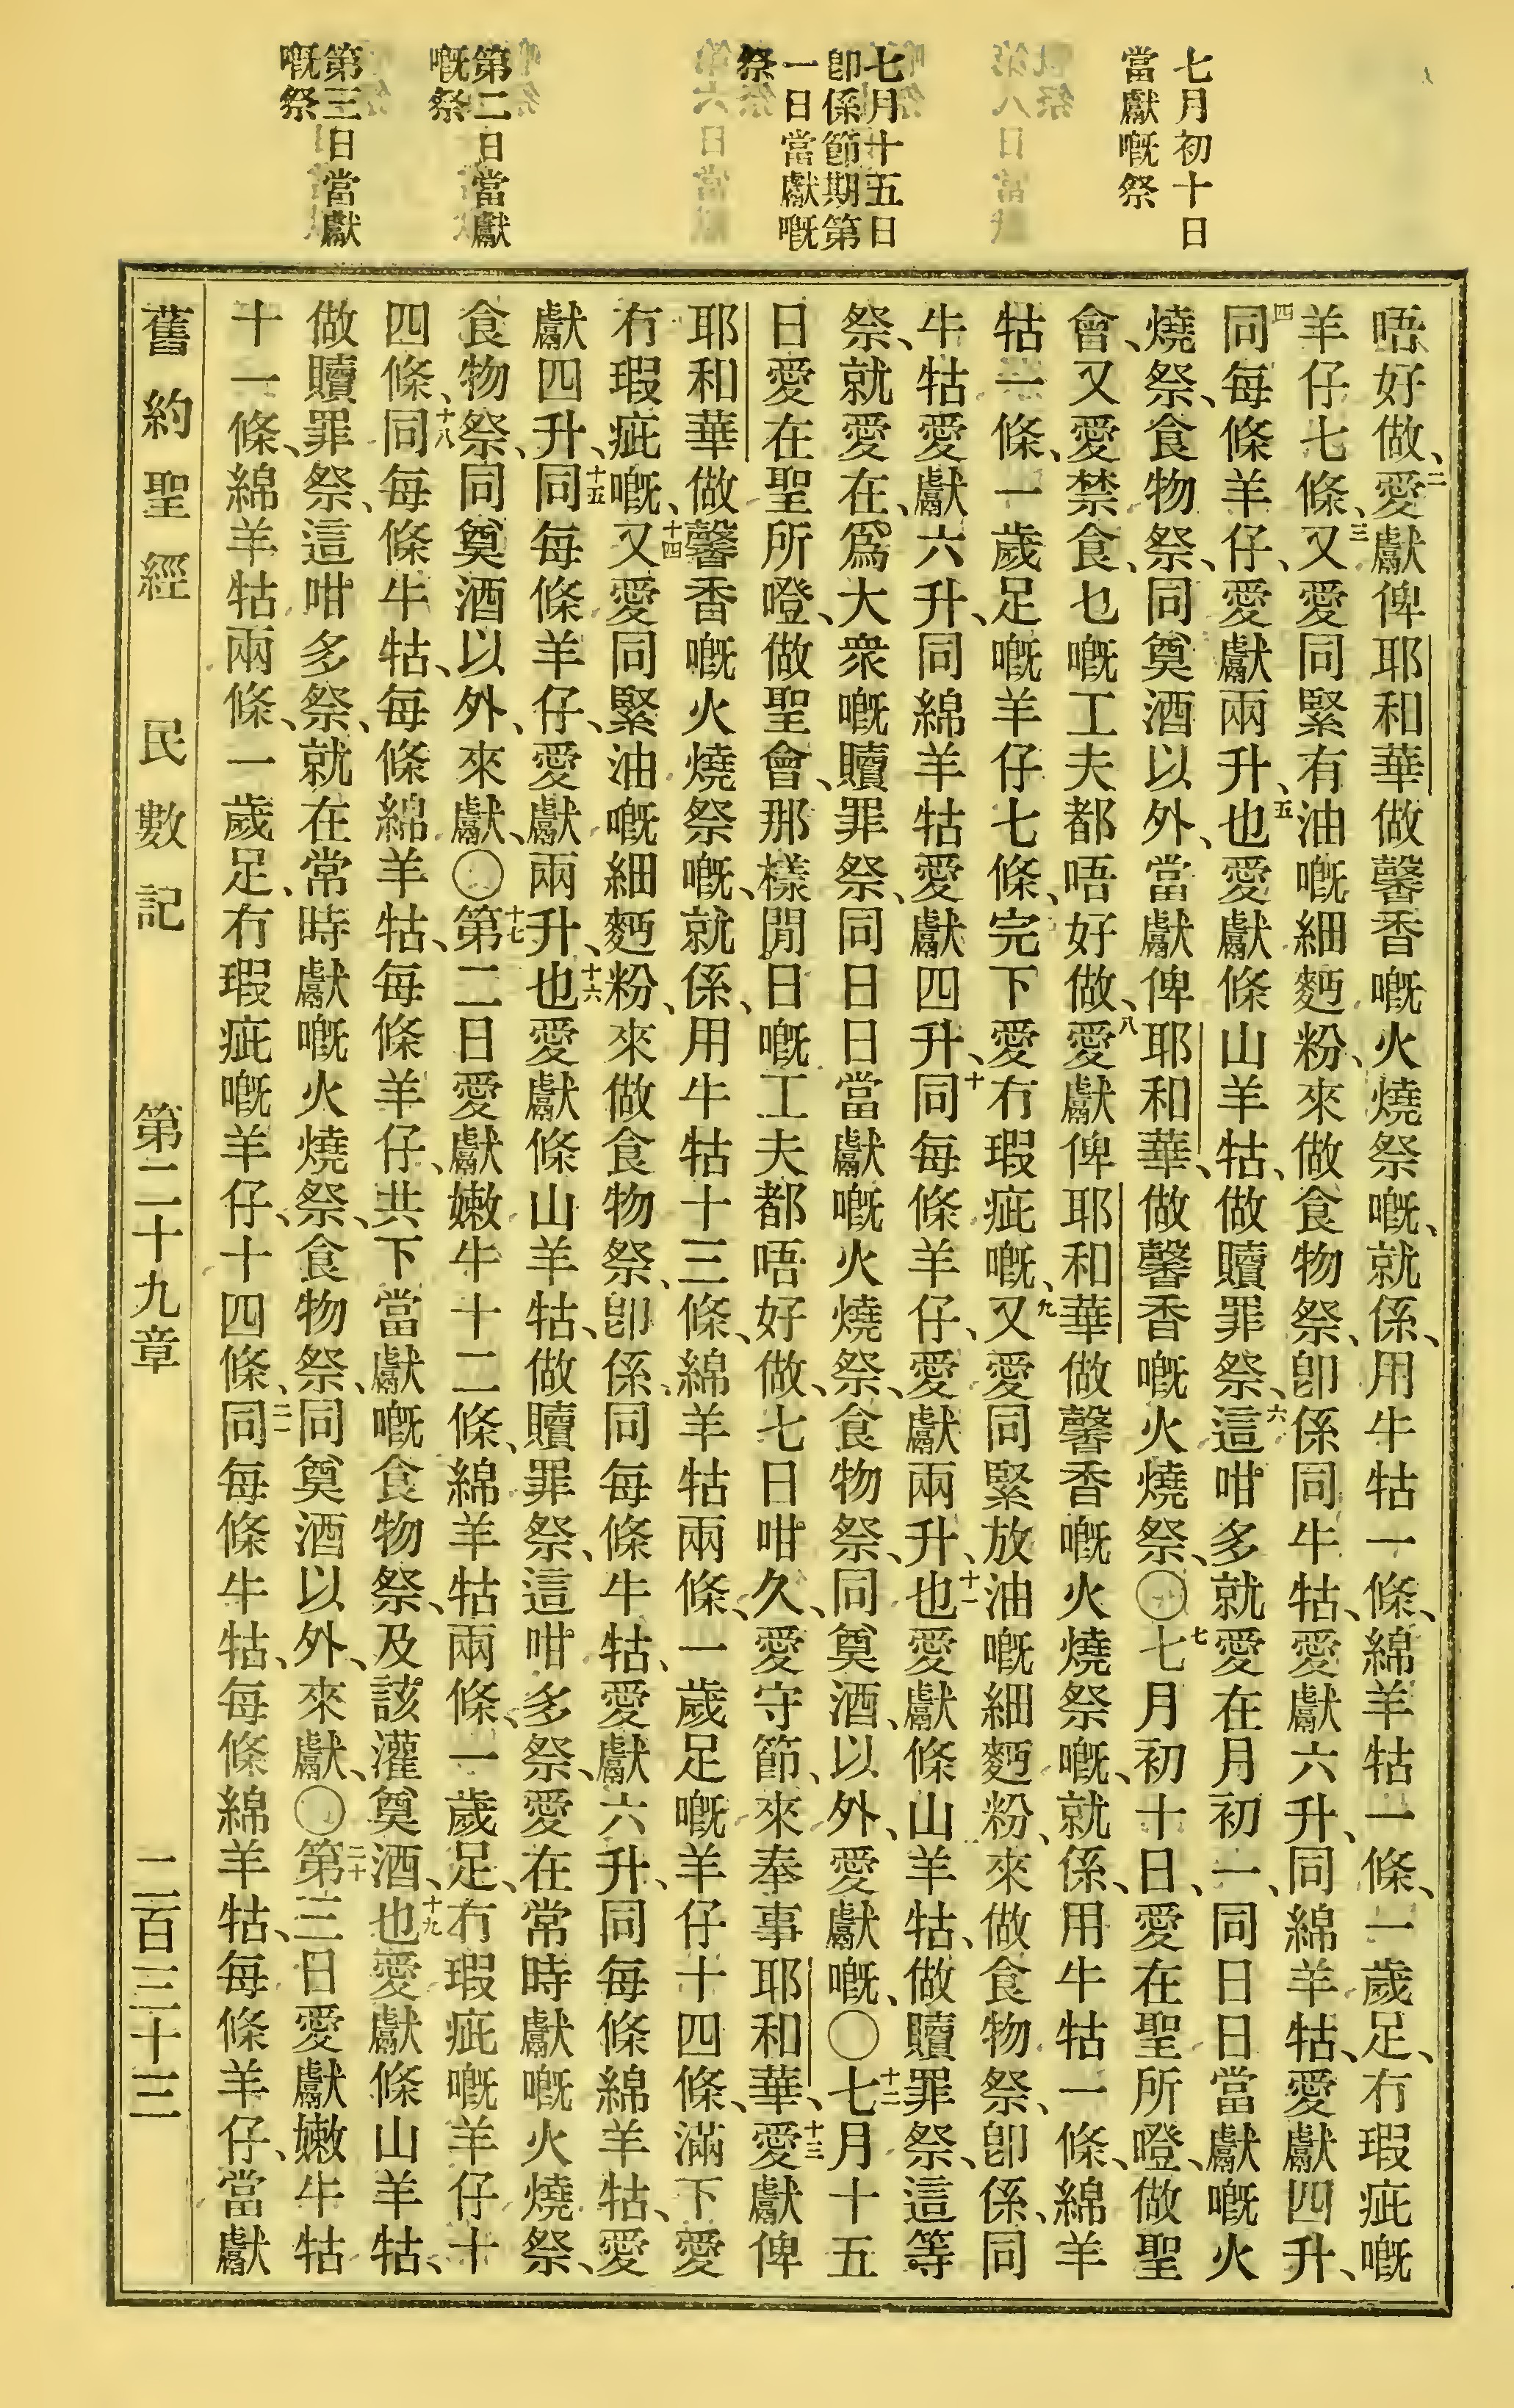 七月初十日
當獻嘅祭
七月十五日
卽係節期第
一日當獻嘅
祭
第二日當獻
嘅祭
第三日當獻
嘅祭
唔好做、二愛獻俾耶和華做馨香嘅火燒祭嘅、就係、用牛牯一條、綿羊牯一條、一歲足、冇瑕疵嘅
羊仔七條、三又愛同緊有油嘅細麪粉、來做食物祭、卽係同牛牯、愛獻六升、同綿羊牯、愛獻四升、
四同每條羊仔、愛獻兩升、五也愛獻條山羊牯、做贖罪祭、六這咁多就愛在月初一、同日日當獻嘅火
燒祭、食物祭、同奠酒以外、當獻俾耶和華、做馨香嘅火燒祭、〇七七月初十日、愛在聖所嶝、做聖
會、又愛禁食、乜嘅工夫都唔好做、八愛獻俾耶和華做馨香嘅火燒祭嘅、就係、用牛牯一條、綿羊
牯一條、一歲足嘅羊仔七條、完下愛冇瑕疵嘅、九又愛同緊放油嘅細麪粉、來做食物祭、卽係、同
牛牯愛獻六升、同綿羊牯愛獻四升、十同每條羊仔、愛獻兩升、十一也愛獻條山羊牯、做贖罪祭、這等
祭、就愛在、爲大衆嘅贖罪祭、同日日當獻嘅火燒祭、食物祭、同奠酒、以外、愛獻嘅、〇十二七月十五
日愛在聖所嶝、做聖會、那樣閒日嘅工夫都唔好做、七日咁久、愛守節、來奉事耶和華、十三愛獻俾
耶和華做馨香嘅火燒祭嘅、就係、用牛牯十三條、綿羊牯兩條、一歲足嘅羊仔十四條、滿下愛
冇瑕疵嘅、十四又愛同緊油嘅細麪粉、來做食物祭、卽係、同每條牛牯、愛獻六升、同每條綿羊牯、愛
獻四升、十五同每條羊仔、愛獻兩升、十六也愛獻條山羊牯、做贖罪祭、這咁多祭、愛在常時獻嘅火燒祭、
食物祭、同奠酒以外、來獻、〇十七第二日愛獻嫩牛十二條、綿羊牯兩條、一歲足、冇瑕疵嘅羊仔十
四條、十八同每條牛牯、每條綿羊牯、每條羊仔、共下當獻嘅食物祭、及該灌奠酒、十九也愛獻條山羊牯、
做贖罪祭、這咁多祭、就在常時獻嘅火燒祭、食物祭、同奠酒以外、來獻、〇二十第三日愛獻嫩牛牯
十一條、綿羊牯兩條、一歲足、冇瑕疵嘅羊仔、十四條、二一同每條牛牯、每條綿羊牯、每條羊仔、當獻
舊約聖經 民數記 第二十九章 二百三十三